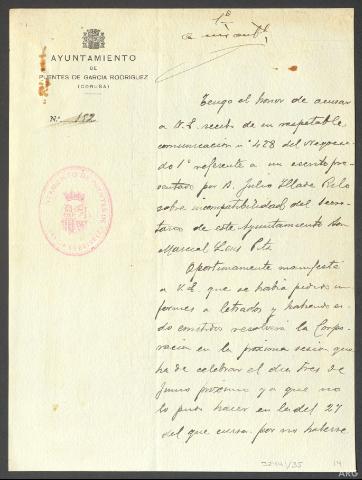 1º
AYUNTAMIENTO
DE
PUENTES DE GARCIA RODRIGUEZ
(CORUÑA)
Nº 152
Tengo el honor de acusar
a V.E. recibo de su respetable
comunicación nº 428 del Negociado
1º referente a un escrito pre
sentado por D. Julio Illade Rilo
sobre incompatibilidad del Secre
tario de este Ayuntamiento Don
Marcial
Oportunamente manifesté
a V.E. que se habia pedido in
formes a letrados y habiendo si
do emitidos resolverá la Corpo
ración en la próxima sesión que
ha de celebrar el dia tres de
Junio próximo ya que no
lo pudo hacer en la del 27
del que cursa por no haberse
14
ARG